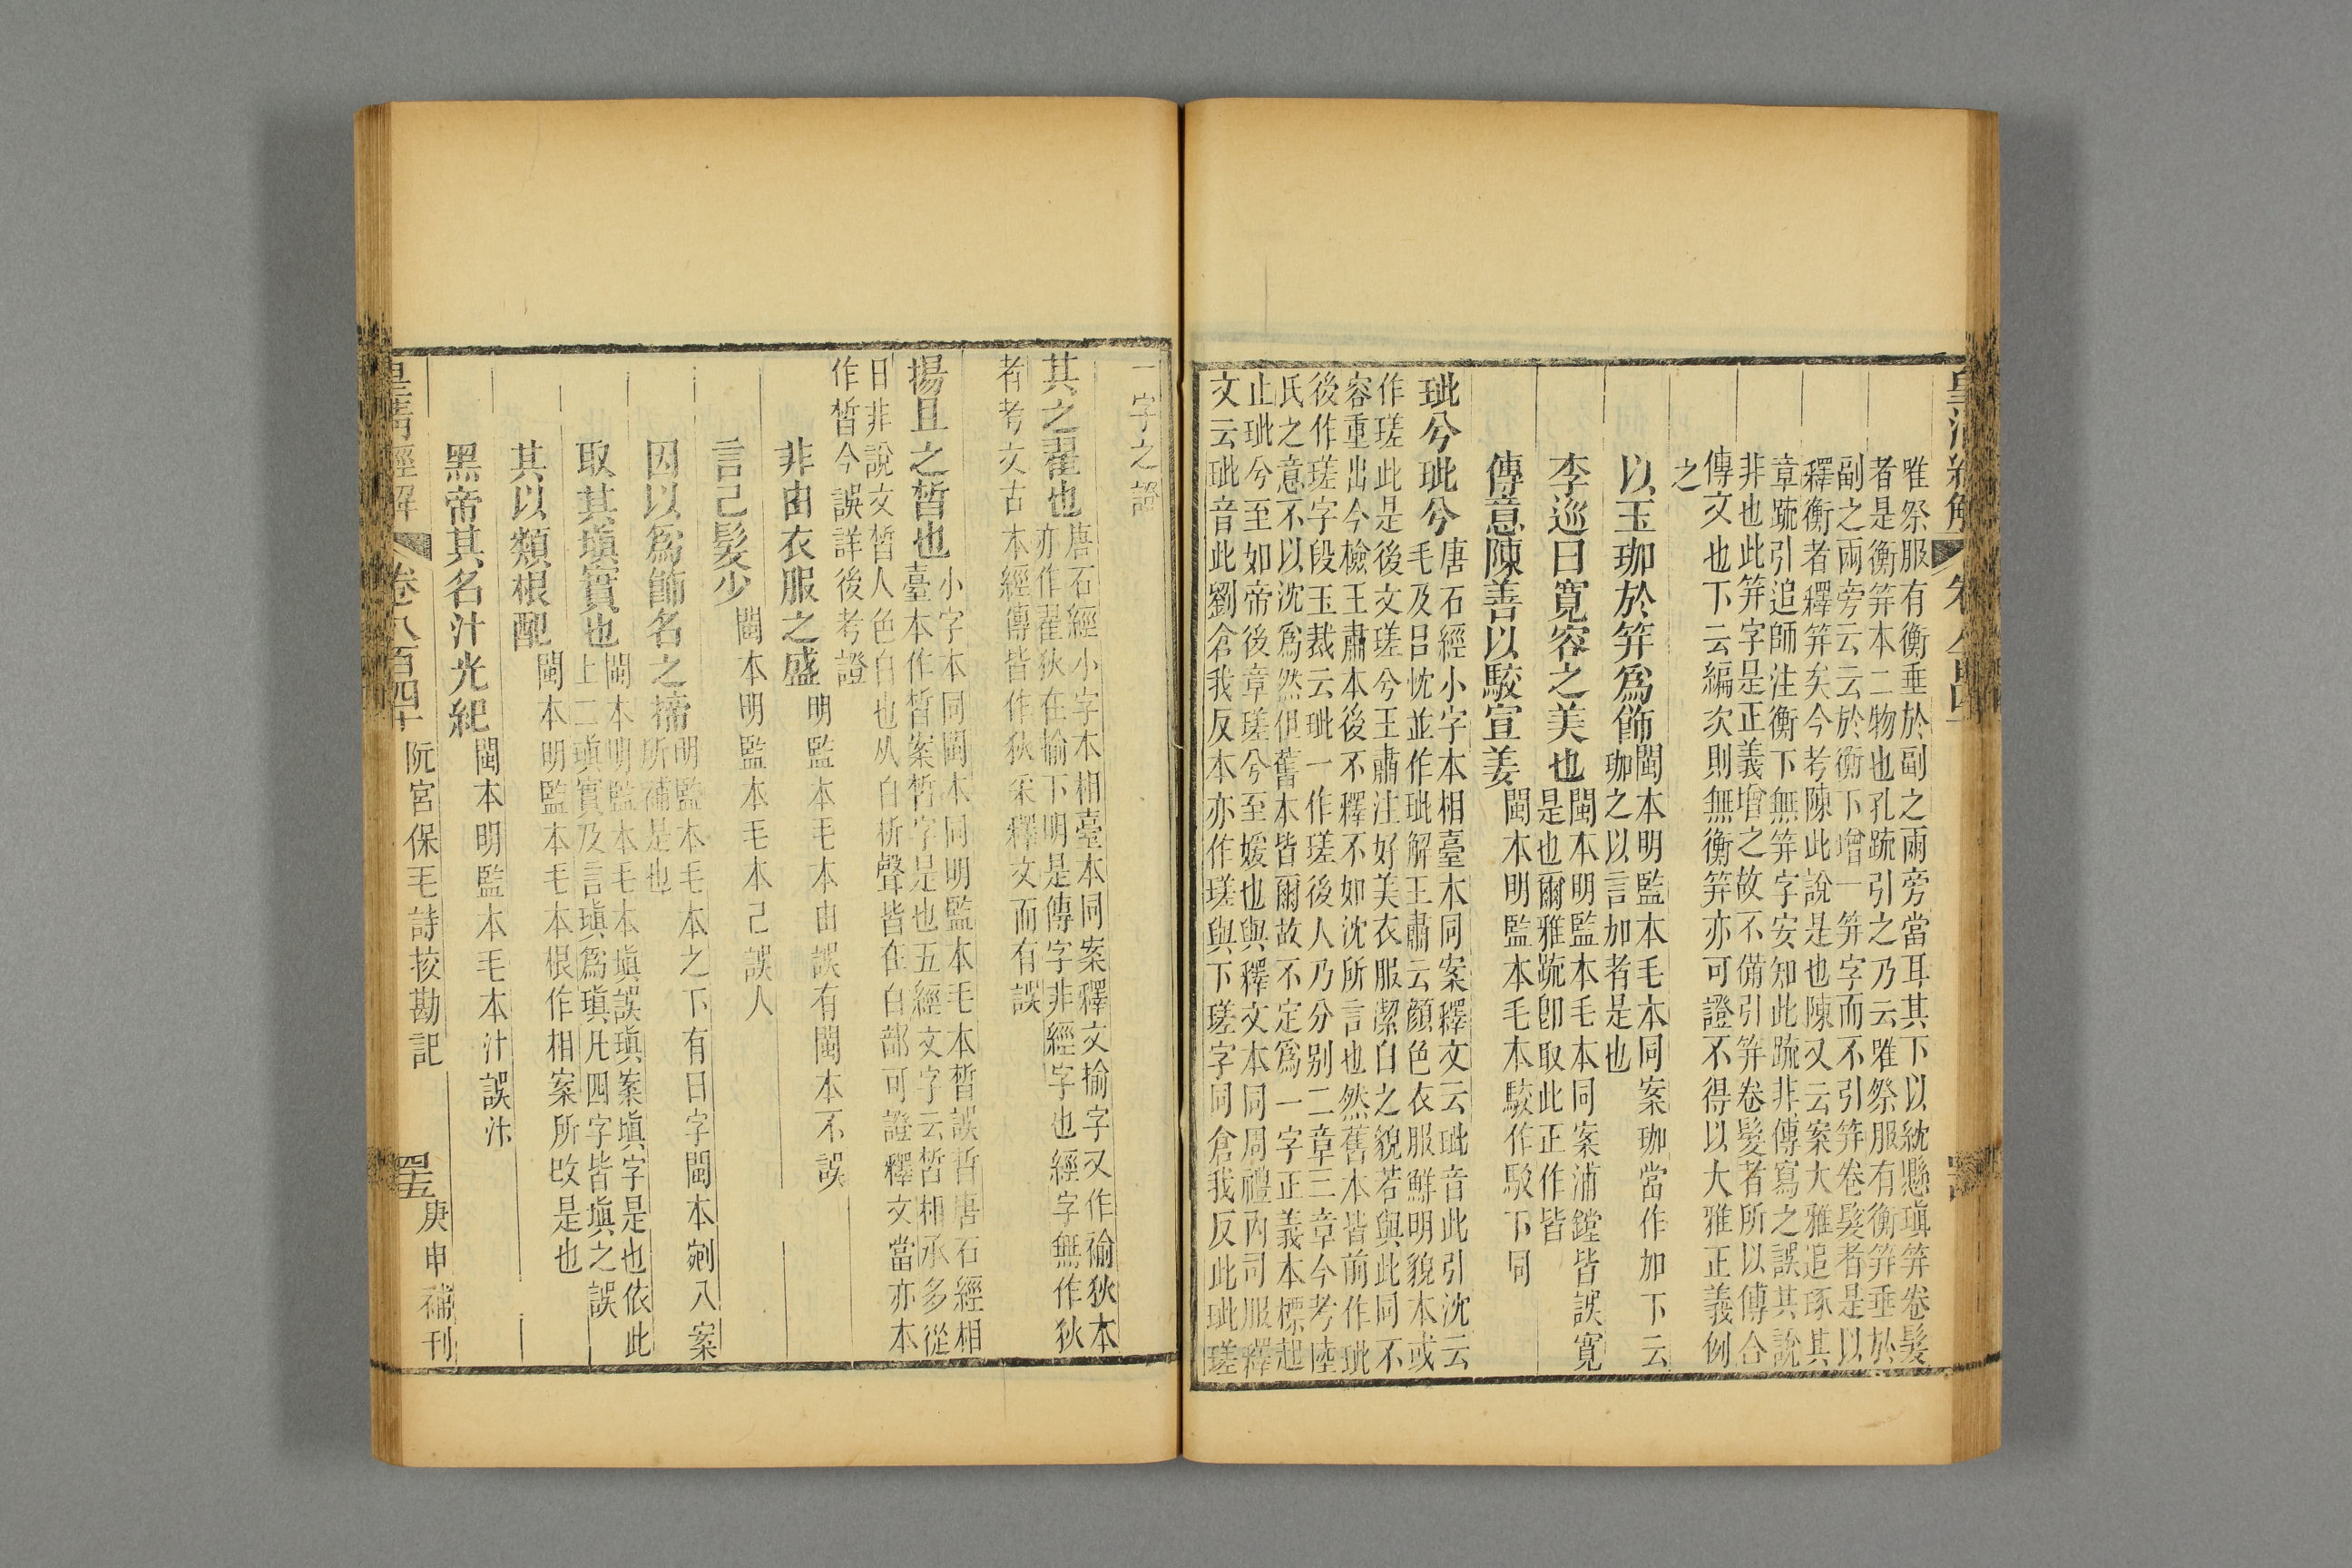 皇清經解
卷八百四十
唯祭服有衡垂於副之兩旁當耳其下以紞懸瑱笄卷髮
者是衡笄本二物也孔疏引之乃云唯祭服有衡笄垂於
副之兩旁云云於衡下增一笄字而不引笄卷髮者是以
釋衡者釋笄矣今考陳此說是也陳又云案大雅追琢其
章疏引追師注衡下無笄字安知此疏非傳寫之誤其說
非也此笄字是正義增之故不備引笄卷髮者所以傅合
傳文也下云編次則無衡笄亦可證不得以大雅正義例
之
以玉珈於笄爲飾閩本明監本毛本同案珈當作加下云
珈之以言加者是也
李巡曰寬容之美也閩本明監本毛本同案浦鏜皆誤寬
是也爾雅疏卽取此正作皆
傳意陳善以駮宣姜閩本明監本毛本駮作駁下同
玼兮玼兮唐石經小字本相臺本同案釋文云玼音此引沈云
毛及呂忱並作玼解王肅云顏色衣服鮮明貌本或
作瑳此是後文瑳兮王肅注好美衣服潔白之貌若與此同不
容重出今檢王肅本後不釋不如沈所言也然舊本皆前作玼
後作瑳字段玉裁云玼一作瑳後人乃分别二章三章今考陸
氏之意不以沈爲然但舊本皆爾故不定爲一字正義本標起
止玼兮至如帝後章瑳兮至媛也與釋文本同周禮內司服釋
文云玼音此劉倉我反本亦作瑳與下瑳字同倉我反此玼瑳
一字之證
其之翟也唐石經小字本相臺本同案釋文揄字又作褕狄本
亦作翟狄在揄下明是傳字非經字也經字無作狄
者考文古本經傳皆作狄采釋文而有誤
揚且之晳也小字本同閩本同明監本毛本晳誤哲唐石經相
臺本作皙案晳字是也五經文字云晳相承多從
日非說文晳人色白也从白析聲皆在白部可證釋文當亦本
作晳今誤詳後考證
非由衣服之盛明監本毛本由誤有閩本不誤
言己髮少閩本明監本毛本己誤人
因以爲飾名之揥明監本毛本之下有曰字閩本剜入案
所補是也
取其塡實也閩本明監本毛本塡誤瑱案塡字是也依此
上二瑱實及言瑱爲瑱凡四字皆塡之誤
其以類根配閩本明監本毛本根作相案所改是也
黑帝其名汁光紀閩本明監本毛本汁誤汴
皇淸經解
卷八百四十
阮宮保毛詩挍勘記
庚申補刊